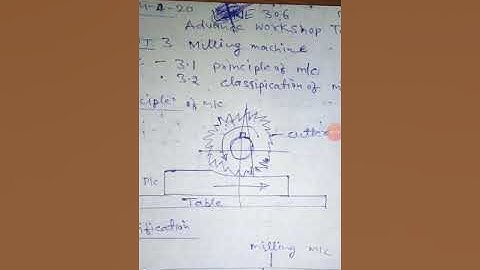 Advance Workshop T
3 Milling machine
- 3.1 principle of m/c
3.2 classification of m
ciples of m/c
cutte
Table
ification
milling m/c